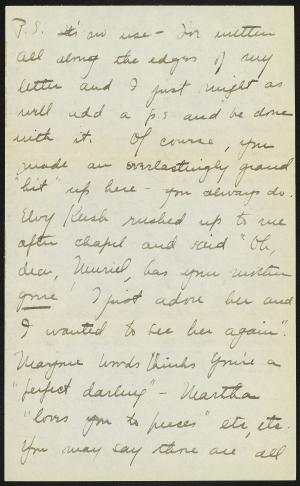 P.S. It's no use - I've written
all along the edges of my
letter and I just might as
well add a p.s and be done
with it. Of course, you
"made an everlastingly grand
"hit" up here - you always do.
Rush rushed up to me
after chapel and said "Oh,
dear, Muriel, has your mother
gone! I just adore her and
I wanted to see her again".
Marjorie Woods thinks you're a
"perfect darling" - Martha
"loves you to pieces" etc, etc.
You may say those are all